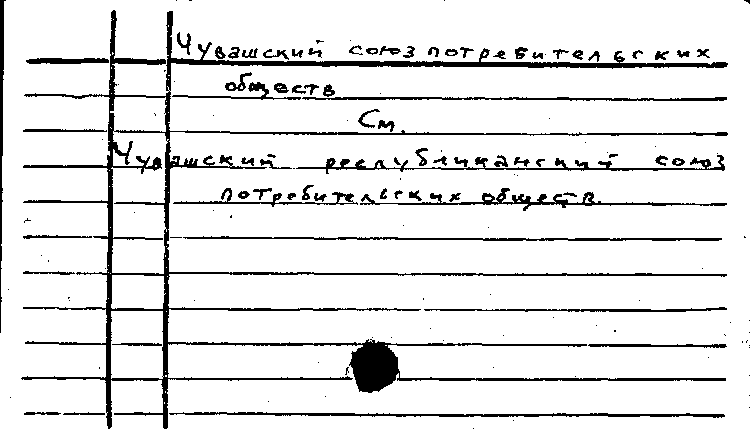 Чувашский союз потребительских
обществ
См.
Чувашский республиканский союз
потребительских обществ.